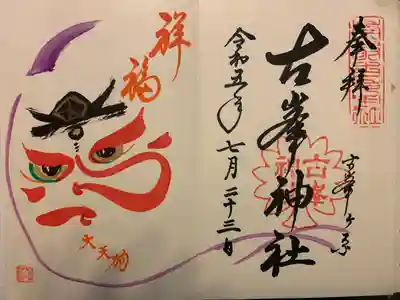 奉拝
古峯ヶ原
古峯神社
古峯神社
令和五年七月二十三日
祥福
大天狗